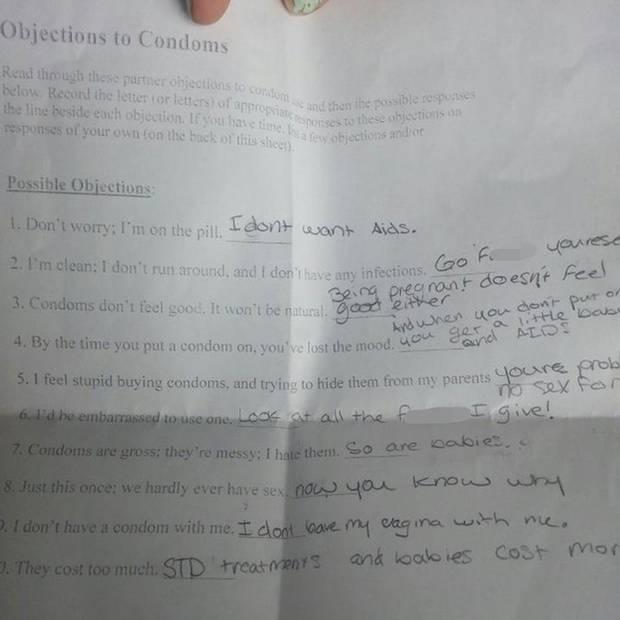 Objections to Condoms
Read through these partner objections to condom use and then the possible responses
below. Record the letter (or letters) of appropriate responses to these objections on
the line beside each objection. If you have time, a few objections and/or
responses of your own (on the back of this sheet).
Possible Objections:
1. Don't worry; I'm on the pill. I dont want Aids.
2. I'm clean; I don't run around, and I don't have any infections. Go F
Being pregnant doesn't feel
3. Condoms don't feel good. It won't be natural. good either
And when you don't put
4. By the time you put a condom on, you've lost the mood. you get a little
and AIDS
5. I feel stupid buying condoms, and trying to hide them from my parents youre
no sex for
6. I'd be embarrassed to use one. Look at all the f I give!
7. Condoms are gross; they're messy; I hate them. So are babies.
8. Just this once; we hardly ever have sex. now you know why
9. I don't have a condom with me. I dont have my vagina with me.
0. They cost too much. STD treatments and babies cost